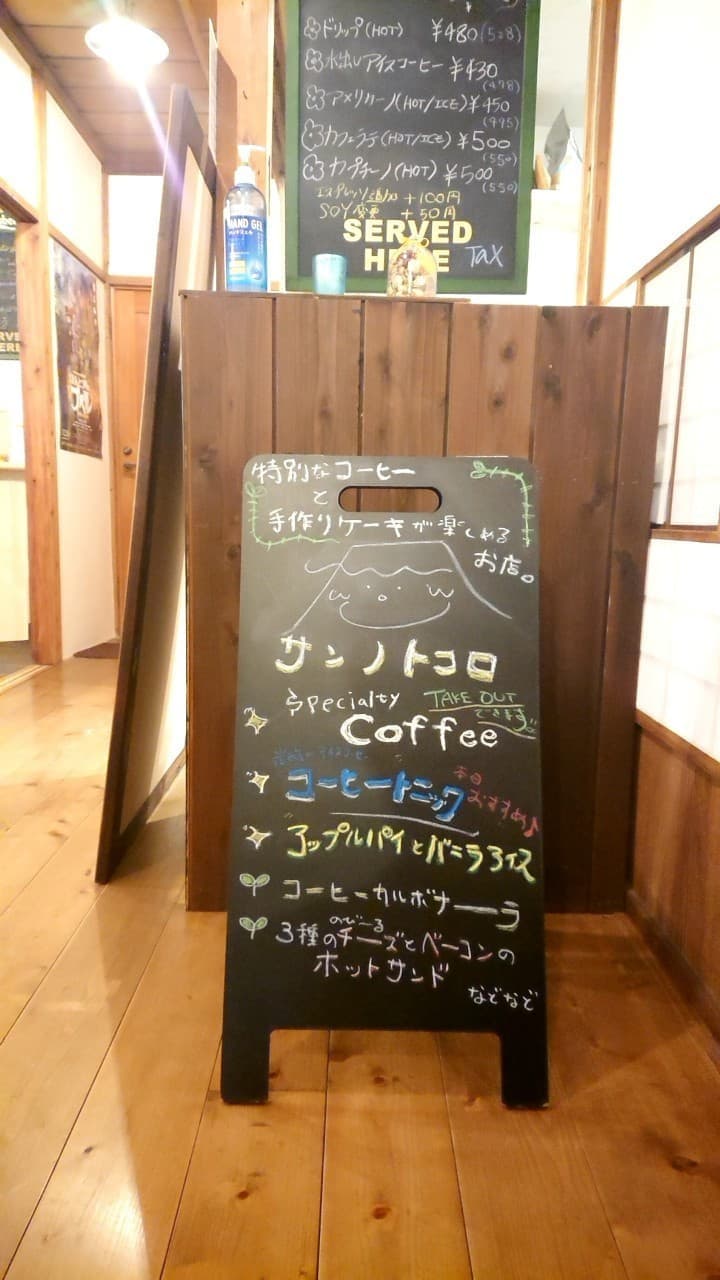 ドリップ(HOT) ¥480(528)
水出しアイスコーヒー ¥430
(478)
アメリカーノ(HOT/ICE) ¥450
(495)
カフェラテ(HOT/ICE) ¥500
(550)
カプチーノ(HOT) ¥500
(550)
エスプレッソ追加 +100円
SOY変更 +50円
SERVED
HERE TAX
HAND GEL
ハンドジェル
SERVED
HERE
特別なコーヒー
と
手作りケーキが楽しめる
お店。
サンノトコロ
Specialty
TAKE OUT
できます。
Coffee
本日
コーヒートニック
おすすめ♪
アップルパイとバニラアイス
コーヒーカルボナーラ
のびーる
3種のチーズとベーコンの
ホットサンド
などなど